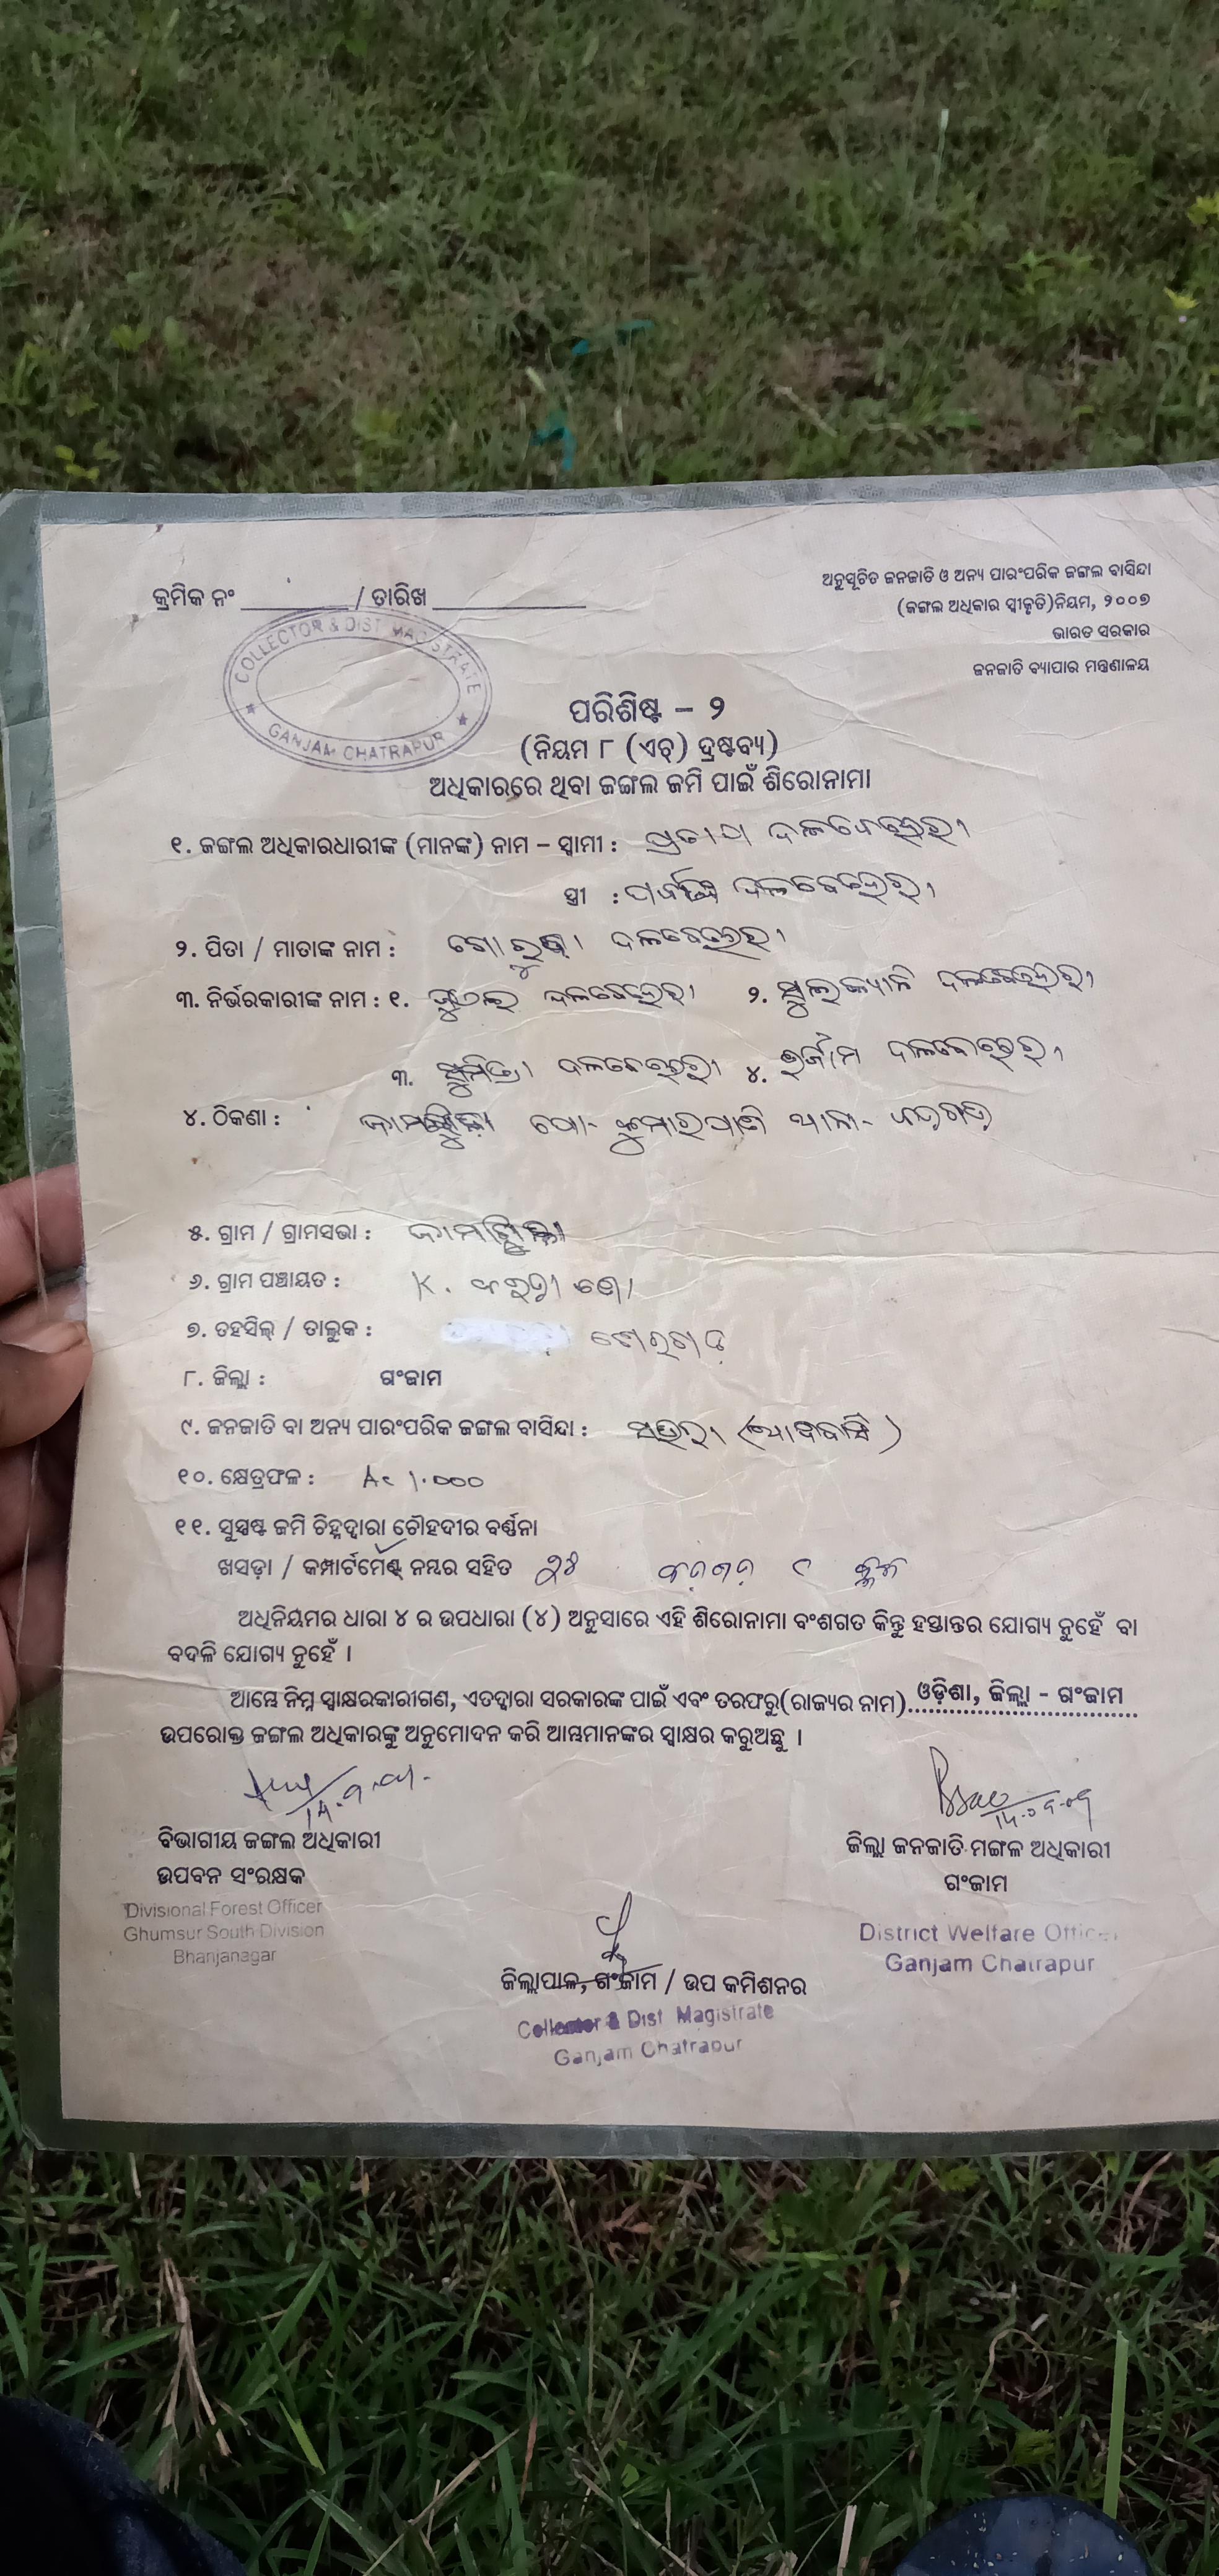 କ୍ରମିକ ନଂ ________ / ତାରିଖ ___________
ଅନୁସୂଚିତ ଜନଜାତି ଓ ଅନ୍ୟ ପାରଂପରିକ ଜଙ୍ଗଲ ବାସିନ୍ଦା
(ଜଙ୍ଗଲ ଅଧିକାର ସ୍ୱୀକୃତି)ନିୟମ, ୨୦୦୭
ଭାରତ ସରକାର
ଜନଜାତି ବ୍ୟାପାର ମନ୍ତ୍ରଣାଳୟ
COLLECTOR & DIST MAGISTRATE
GANJAM CHATRAPUR
ପରିଶିଷ୍ଟ – ୨
(ନିୟମ ୮ (ଏଚ୍) ଦ୍ରଷ୍ଟବ୍ୟ)
ଅଧିକାରରେ ଥିବା ଜଙ୍ଗଲ ଜମି ପାଇଁ ଶିରୋନାମା
୧. ଜଙ୍ଗଲ ଅଧିକାରଧାରୀଙ୍କ (ମାନଙ୍କ) ନାମ – ସ୍ୱାମୀ : ପ୍ରତାପ ଦଳବେହେରା
ସ୍ତ୍ରୀ : ଦଳବେହେରା
୨. ପିତା / ମାତାଙ୍କ ନାମ : ଦଳବେହେରା
୩. ନିର୍ଭରକାରୀଙ୍କ ନାମ : ୧. ଦଳବେହେରା ୨. ଦଳବେହେରା
୩. ସୁମିତ୍ରା ଦଳବେହେରା ୪. ଦଳବେହେରା
୪. ଠିକଣା : ପୋ- ଥାନା-
୫. ଗ୍ରାମ / ଗ୍ରାମସଭା :
୬. ଗ୍ରାମ ପଞ୍ଚାୟତ : K.
୭. ତହସିଲ୍ / ତାଲୁକ : ଶେରଗଡ
୮. ଜିଲ୍ଲା : ଗଂଜାମ
୯. ଜନଜାତି ବା ଅନ୍ୟ ପାରଂପରିକ ଜଙ୍ଗଲ ବାସିନ୍ଦା : ସଉରା (ଆଦିବାସି)
୧୦. କ୍ଷେତ୍ରଫଳ : Ac ୧.୦୦୦
୧୧. ସୁସ୍ପଷ୍ଟ ଜମି ଚିହ୍ନଦ୍ୱାରା ଚୌହଦୀର ବର୍ଣ୍ଣନା
ଖସଡ଼ା / କମ୍ପାର୍ଟମେଣ୍ଟ୍ ନମ୍ବର ସହିତ
ଅଧିନିୟମର ଧାରା ୪ ର ଉପଧାରା (୪) ଅନୁସାରେ ଏହି ଶିରୋନାମା ବଂଶଗତ କିନ୍ତୁ ହସ୍ତାନ୍ତର ଯୋଗ୍ୟ ନୁହେଁ ବା
ବଦଳି ଯୋଗ୍ୟ ନୁହେଁ ।
ଆମ୍ଭେ ନିମ୍ନ ସ୍ୱାକ୍ଷରକାରୀଗଣ, ଏତଦ୍ୱାରା ସରକାରଙ୍କ ପାଇଁ ଏବଂ ତରଫରୁ(ରାଜ୍ୟର ନାମ) ଓଡ଼ିଶା, ଜିଲ୍ଲା - ଗଂଜାମ
ଉପରୋକ୍ତ ଜଙ୍ଗଲ ଅଧିକାରଙ୍କୁ ଅନୁମୋଦନ କରି ଆମ୍ଭମାନଙ୍କର ସ୍ୱାକ୍ଷର କରୁଅଛୁ ।
ବିଭାଗୀୟ ଜଙ୍ଗଲ ଅଧିକାରୀ
ଉପବନ ସଂରକ୍ଷକ
Divisional Forest Officer
Ghumsur South Division
Bhanjanagar
14.09.09
ଜିଲ୍ଲା ଜନଜାତି ମଙ୍ଗଳ ଅଧିକାରୀ
ଗଂଜାମ
District Welfare Officer
Ganjam Chatrapur
ଜିଲ୍ଲାପାଳ, ଗଂଜାମ / ଉପ କମିଶନର
Collector & Dist Magistrate
Ganjam Chatrapur